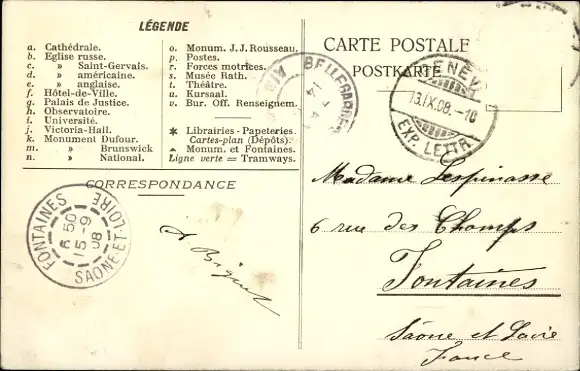 LÉGENDE
a. Cathédrale.
b. Eglise russe.
c. » Saint-Gervais.
d. » américaine.
e. » anglaise.
f. Hôtel-de-Ville.
g. Palais de Justice.
h. Observatoire.
i. Université.
j. Victoria-Hall.
k. Monument Dufour.
m. » Brunswick
n. » National.
o. Monum. J.J. Rousseau.
p. Postes.
r. Forces motrices.
s. Musée Rath.
t. Théâtre.
u. Kursaal.
v. Bur. Off. Renseignem.
* Librairies - Papeteries.
Cartes-plan (Dépôts).
Monum. et Fontaines.
Ligne verte = Tramways.
CORRESPONDANCE
CARTE POSTALE
POSTKARTE
BELLEGARDE
GENÈVE
13.IX.08.-10
EXP. LETTR.
FONTAINES
6 50
15-9
08
SAONE-ET-LOIRE
Madame Lespinasse
6 rue des Champs
Fontaines
Saône et Loire
France